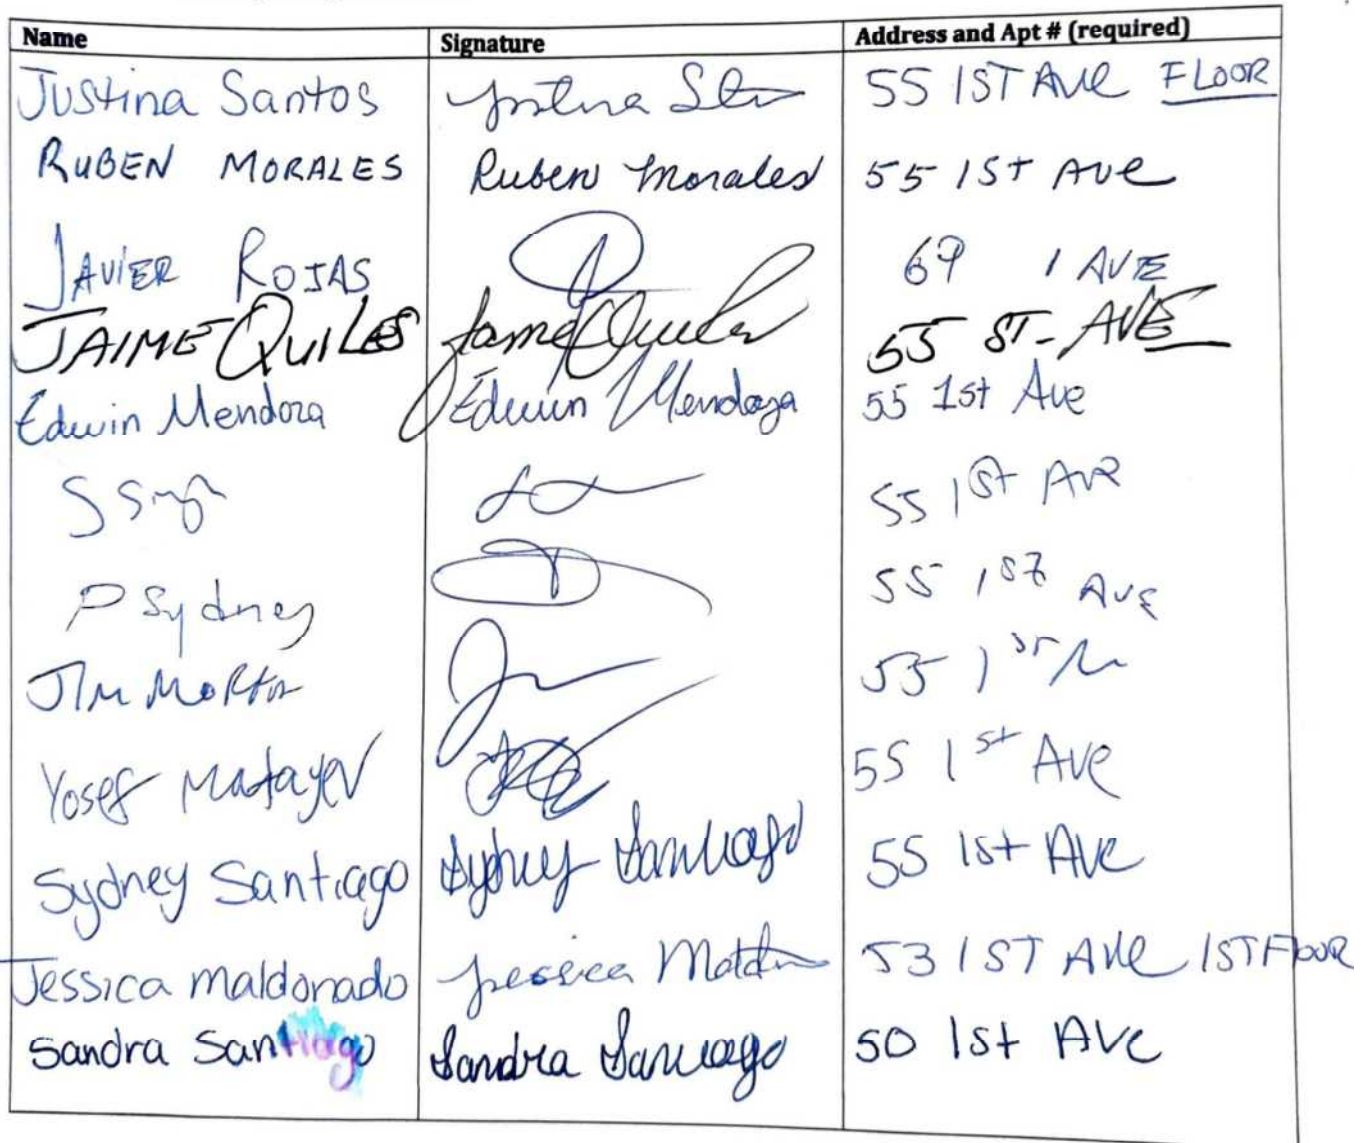 Name Signature Address and Apt # (required)
Justina Santos Justina 55 1ST AVE FLOOR
RUBEN MORALES Ruben Morales 55 1st AVE
JAVIER ROJAS 69 1 AVE
JAIME QUILES Jaime Quiles 55 ST- AVE
Edwin Mendoza Edwin Mendoza 55 1st Ave
55 1st Ave
P Sydney 55 1st AVE
Jim 55 1st
Yosef Matayev 55 1st Ave
Sydney Santiago Sydney Santiago 55 1st AVE
Jessica maldonado Jessica 53 1ST AVE 1ST FLOOR
Sandra Santiago Sandra Santiago 50 1st AVE